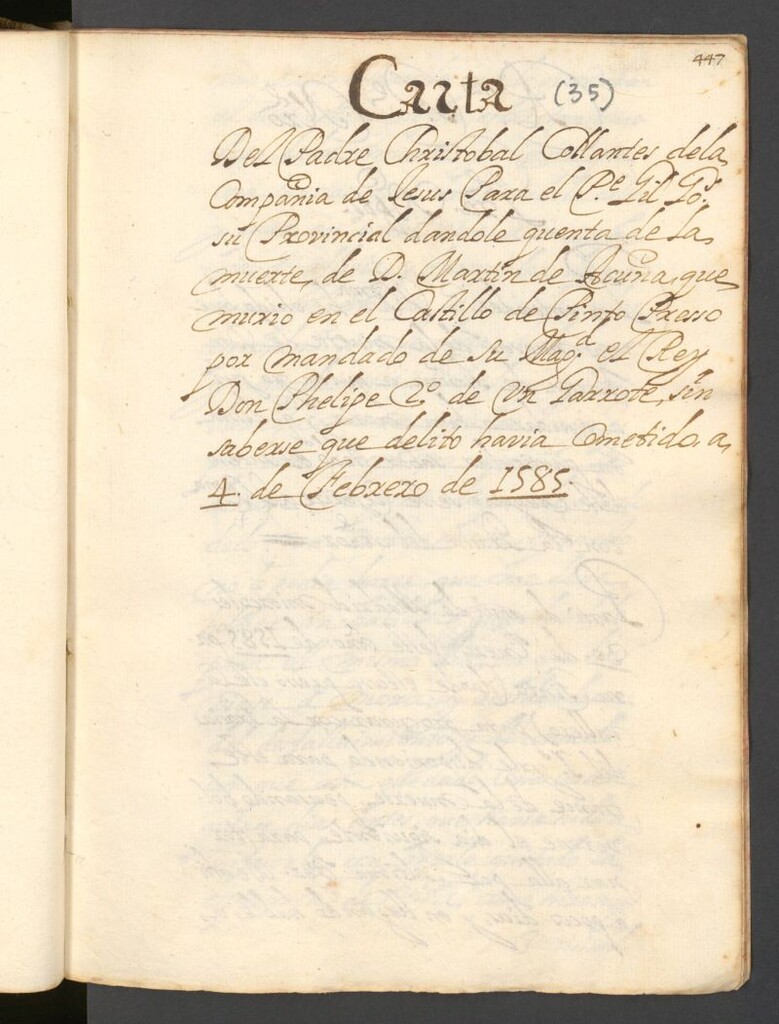 447
Carta (35)
Del Padre Christobal Collantes dela
Compañia de Iesus Para el P.e Gil Go.s
su Provincial dandole quenta de la
muerte, de D. Martin de Acuña, que
murio en el Castillo de Pinto Preso
por mandado de su Mag.d el Rey
Don Phelipe 2º de un Garrote, sin
saberse que delito havia Cometido, a,
4. de Febrero de 1585.